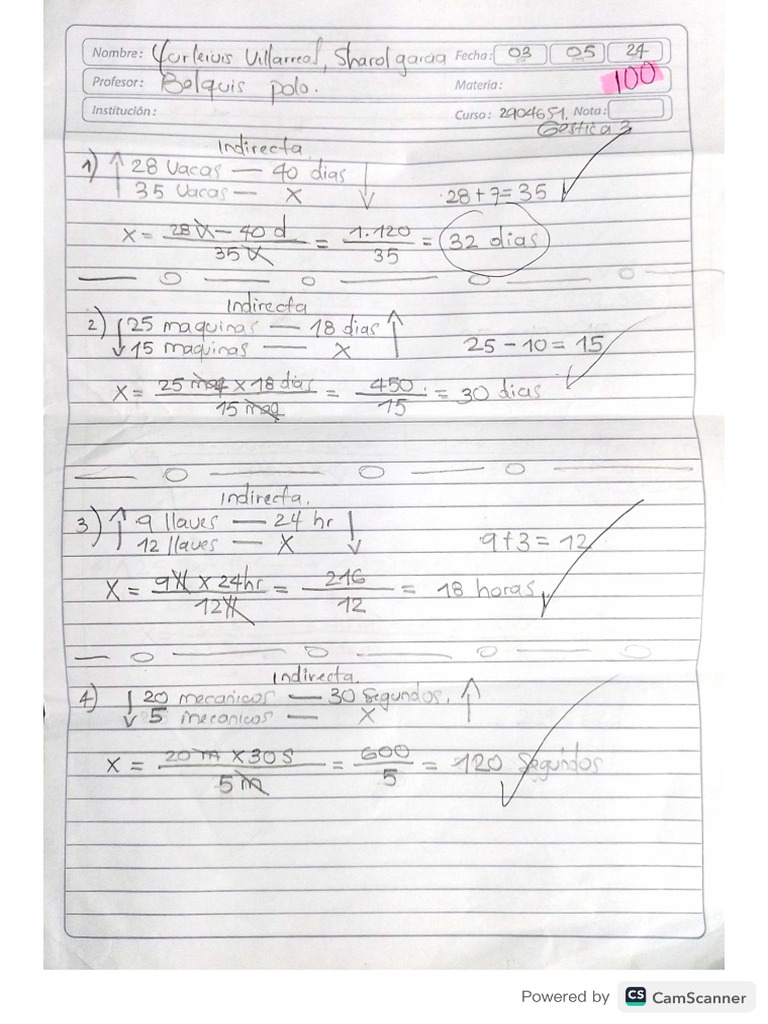 Nombre: Yurleivis Villarreal, Sharol garcia Fecha: 03 05 24
Profesor: Belquis polo. Materia: 100
Institución: Curso: 2904651. Nota:
Gestica 3
Indirecta.
1) 28 Vacas — 40 dias
35 Vacas — X 28+7=35
X = 28V – 40 d / 35V = 1.120 / 35 = 32 dias
Indirecta
2) 25 maquinas — 18 dias
15 maquinas — X 25 – 10 = 15
X = 25 maq x 18 dias / 15 maq = 450 / 15 = 30 dias
Indirecta.
3) 9 llaves — 24 hr
12 llaves — X 9+3 = 12
X = 9ll x 24hr / 12ll = 216 / 12 = 18 horas
Indirecta.
4) 20 mecanicos — 30 Segundos.
5 mecanicos — X
X = 20 m x 30 S / 5 m = 600 / 5 = 120 Segundos
Powered by CS CamScanner